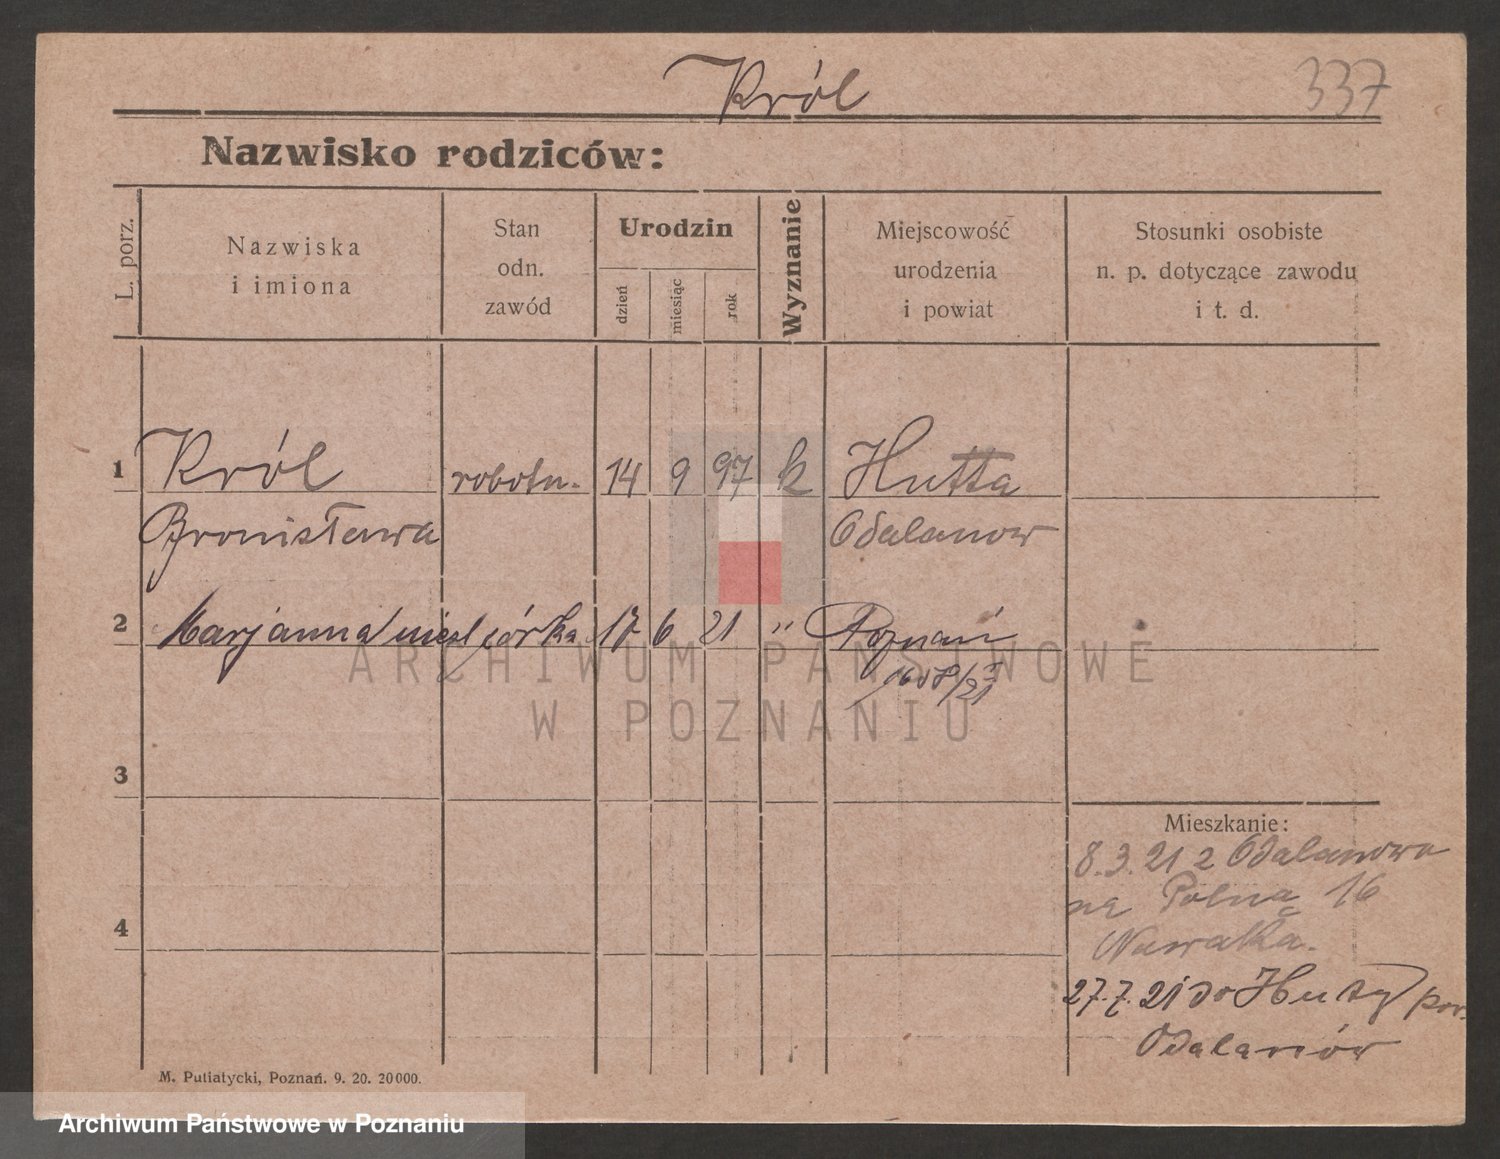 Król
337
Nazwisko rodziców:
L. porz.
Nazwiska
i imiona
Stan
odn.
zawód
Urodzin
dzień
miesiąc
rok
Wyznanie
Miejscowość
urodzenia
i powiat
Stosunki osobiste
n. p. dotyczące zawodu
i t. d.
1 Król robotn. 14 9 97 k Hutta
Bronisława Odalanow
2 Marjanna nieśl córka 17 6 21 " Poznań
ARCHIWUM PAŃSTWOWE
W POZNANIU
3
Mieszkanie:
8.3.21 z Odalanowa
na Polną 16
Nawałka.
4
27.7.21 do Huty pow.
Odalanów
M. Putiatycki, Poznań. 9. 20. 20000.
Archiwum Państwowe w Poznaniu